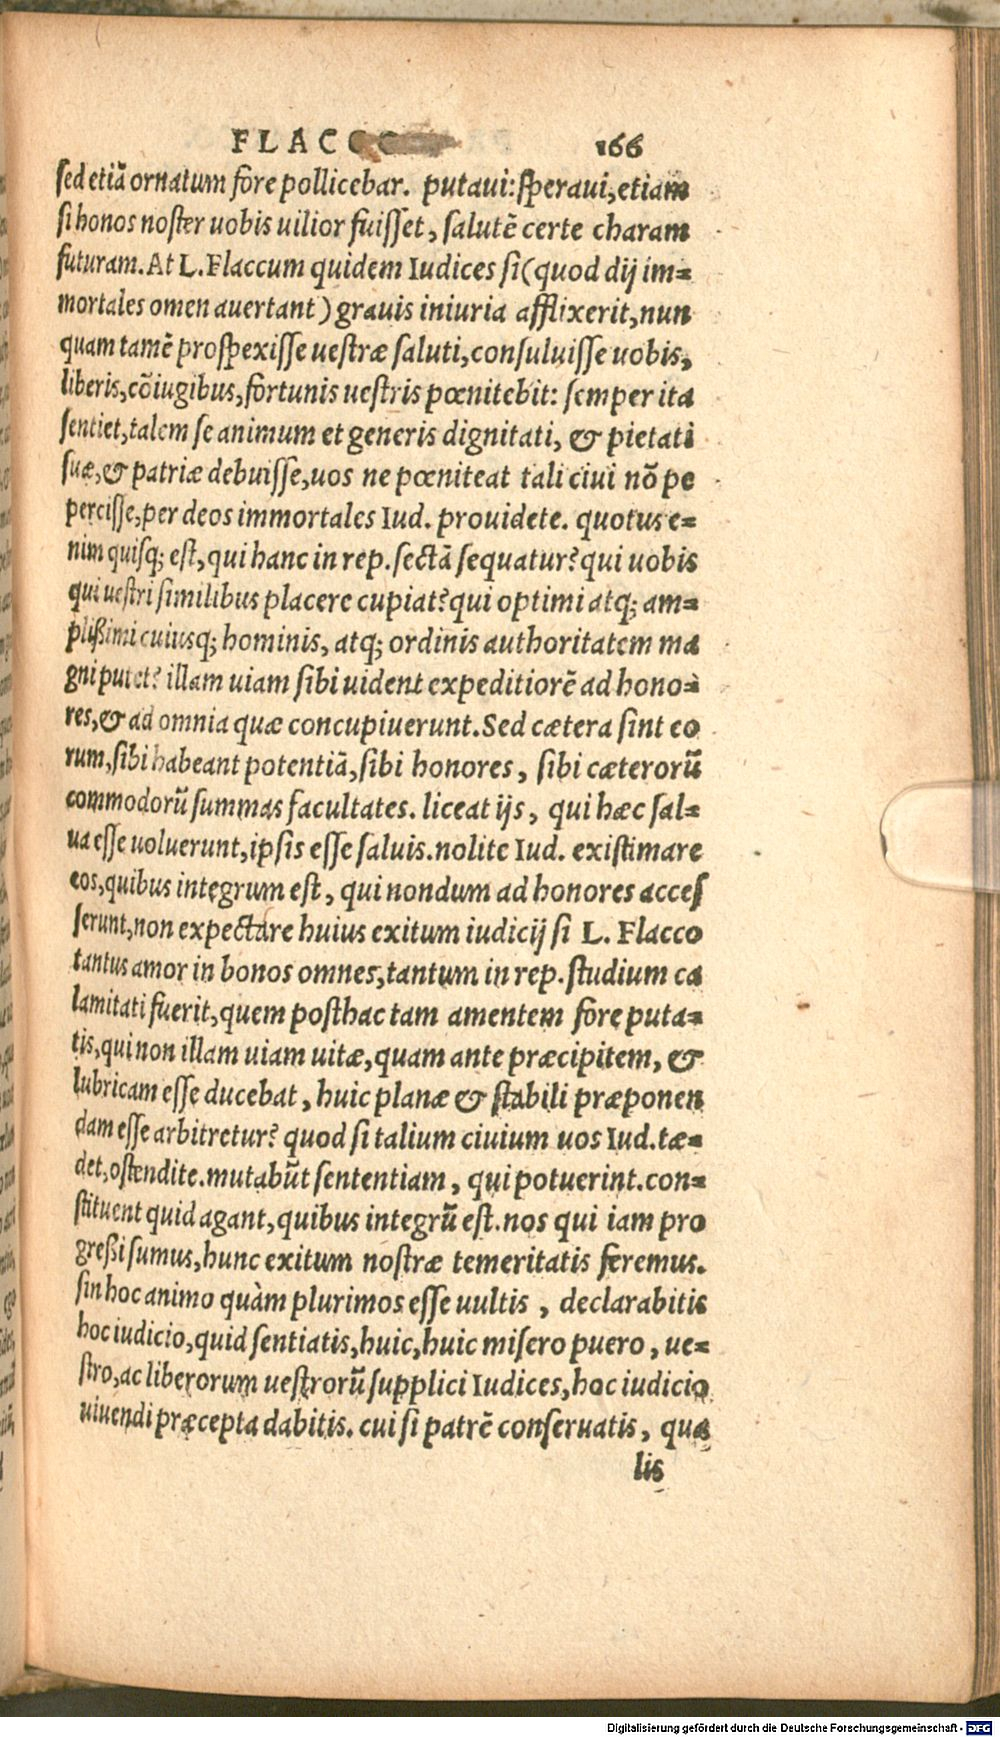 FLACCO 166
sed etiā ornatum fore pollicebar. putaui: speraui, etiam
si honos noster uobis uilior fuisset, salutē certe charam
futuram. At L. Flaccum quidem Iudices si (quod dij im-
mortales omen auertant) grauis iniuria afflixerit, nun
quam tamē prospexisse uestræ saluti, consuluisse uobis,
liberis, cōiugibus, fortunis uestris pœnitebit: semper ita
sentiet, talem se animum et generis dignitati, & pietati
suæ, & patriæ debuisse, uos ne pœniteat tali ciui nō pe
percisse, per deos immortales Iud. prouidete. quotus e-
nim quisq; est, qui hanc in rep. sectā sequatur? qui uobis
qui uestri similibus placere cupiat? qui optimi atq; am-
plißimi cuiusq; hominis, atq; ordinis authoritatem ma
gni putet? illam uiam sibi uident expeditiorē ad hono-
res, & ad omnia quæ concupiuerunt. Sed cætera sint eo
rum, sibi habeant potentiā, sibi honores, sibi cæterorū
commodorū summas facultates. liceat ijs, qui hæc sal-
ua esse uoluerunt, ipsis esse saluis. nolite Iud. existimare
eos, quibus integrum est, qui nondum ad honores acces
serunt, non expectare huius exitum iudicij si L. Flacco
tantus amor in bonos omnes, tantum in rep. studium ca
lamitati fuerit, quem posthac tam amentem fore puta-
tis, qui non illam uiam uitæ, quam ante præcipitem, &
lubricam esse ducebat, huic planæ & stabili præponen
dam esse arbitretur? quod si talium ciuium uos Iud. tæ-
det, ostendite. mutabūt sententiam, qui potuerint. con-
stituent quid agant, quibus integrū est. nos qui iam pro
greßi sumus, hunc exitum nostræ temeritatis feremus.
sin hoc animo quàm plurimos esse uultis, declarabitis
hoc iudicio, quid sentiatis, huic, huic misero puero, ue-
stro, ac liberorum uestrorū supplici Iudices, hoc iudicio
uiuendi præcepta dabitis. cui si patrē conseruatis, qua
lis
Digitalisierung gefördert durch die Deutsche Forschungsgemeinschaft - DFG